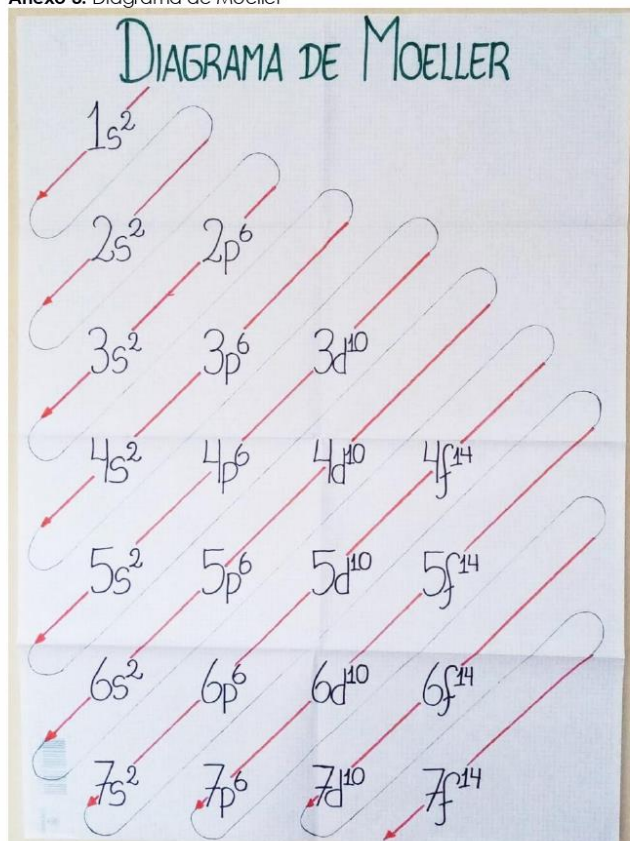 Anexo 3. Diagrama de Moeller
DIAGRAMA DE MOELLER
1s²
2s² 2p⁶
3s² 3p⁶ 3d¹⁰
4s² 4p⁶ 4d¹⁰ 4f¹⁴
5s² 5p⁶ 5d¹⁰ 5f¹⁴
6s² 6p⁶ 6d¹⁰ 6f¹⁴
7s² 7p⁶ 7d¹⁰ 7f¹⁴